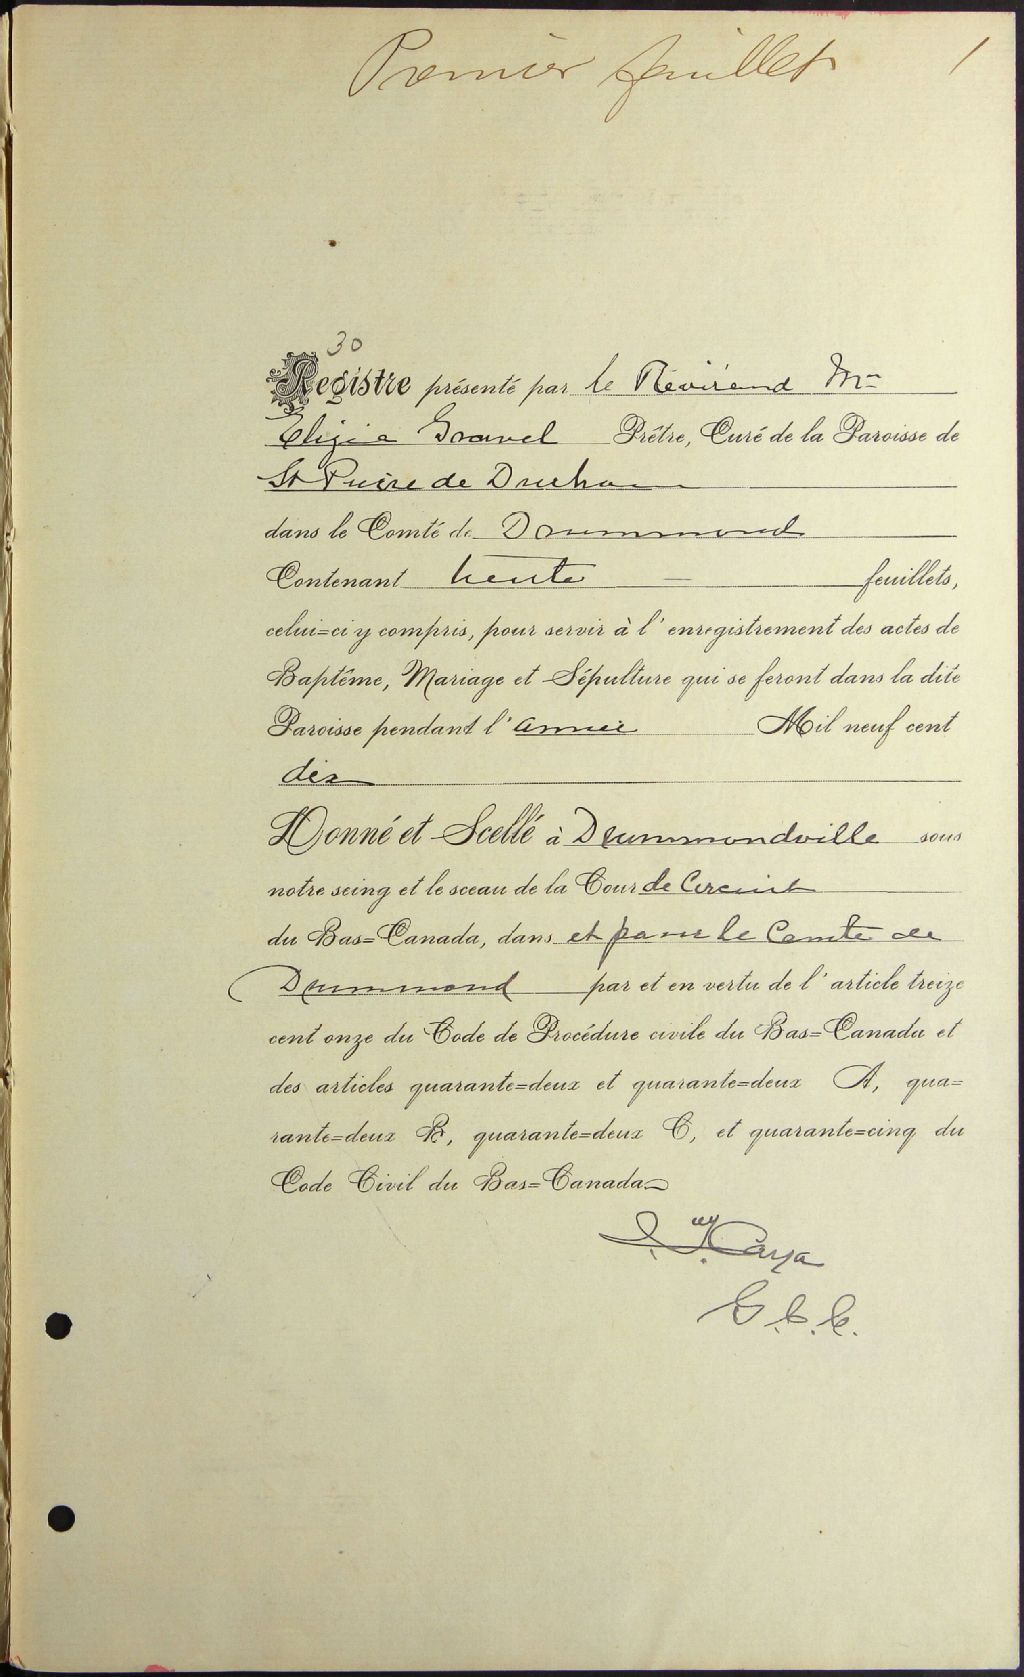 Premier feuillet 1
30
Registre présenté par le Révérend Mr
Gravel Prêtre, Curé de la Paroisse de
St Pierre de Durham
dans le Comté de Drummond
Contenant trente feuillets,
celui=ci y compris, pour servir à l'enregistrement des actes de
Baptême, Mariage et Sépulture qui se feront dans la dite
Paroisse pendant l'année Mil neuf cent
dix
Donné et Scellé à Drummondville sous
notre seing et le sceau de la Cour de Circuit
du Bas=Canada, dans et pour le Comté de
Drummond par et en vertu de l'article treize
cent onze du Code de Procédure civile du Bas=Canada et
des articles quarante=deux et quarante=deux A, qua=
rante=deux B, quarante=deux C, et quarante=cinq du
Code Civil du Bas=Canada
G.C.C.